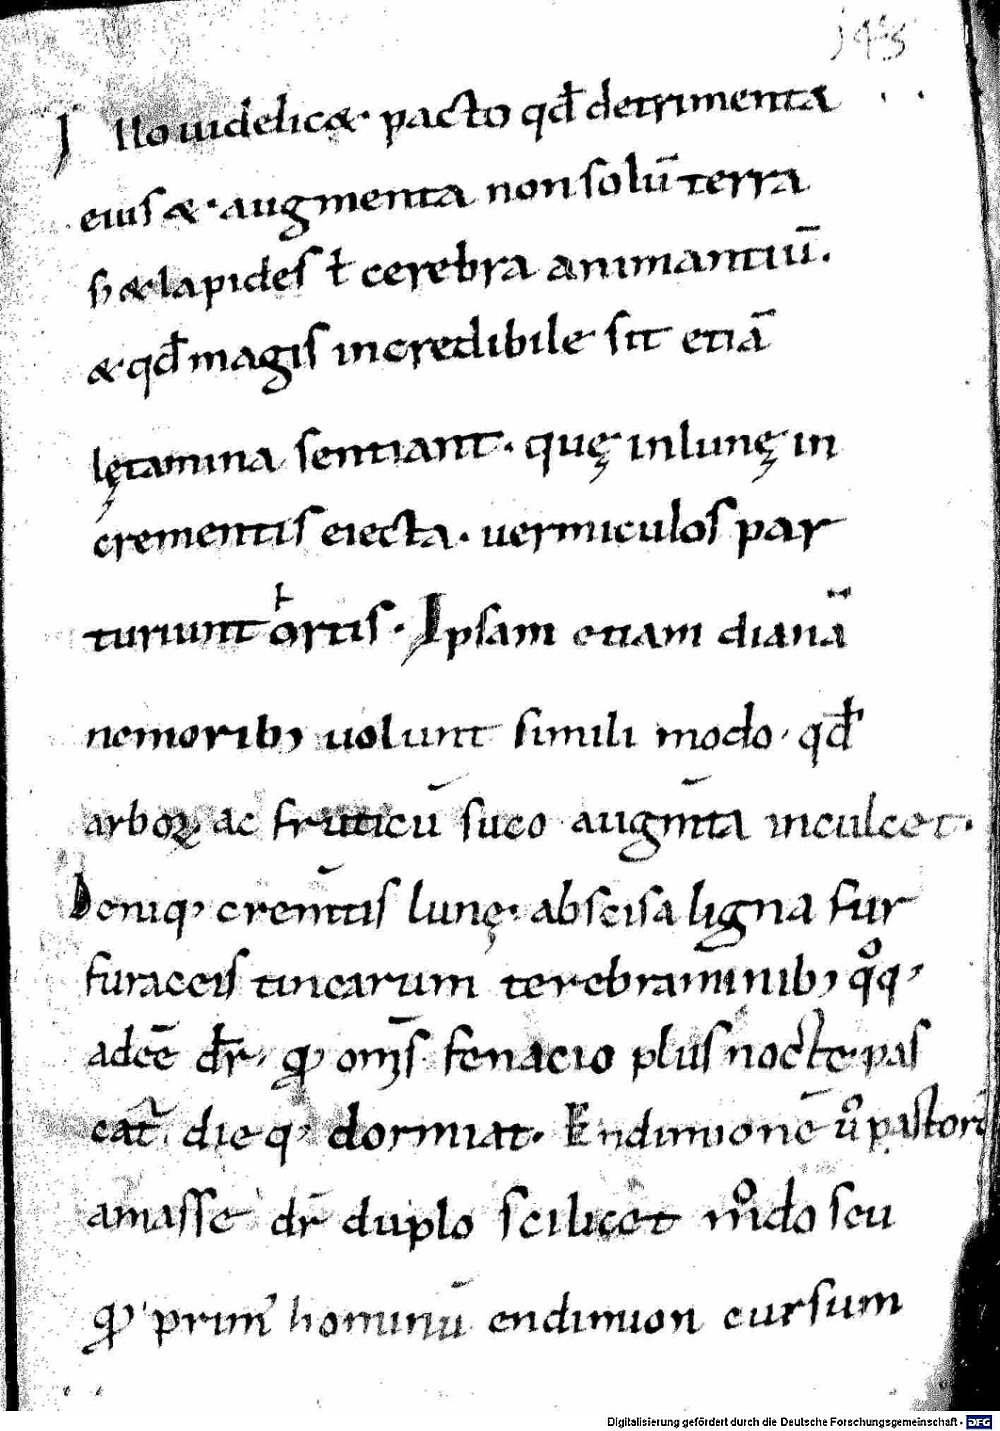 143
Illo uidelic& pacto qđ detrimenta
eius & augmenta non solū terra
s; & lapides ł cerebra animantiū.
& qđ magis incredibile sit etiā
lętamina sentiant. quę in lunę in
crementis eiecta. uermiculos par
turiunt ortis. Ipsam etiam dianā
nemorib; uolunt simili modo. qđ
arboꝝ ac fruticū suco augm̄ta inculcet.
Deniq; crem̄tis lunę. abscisa ligna fur
furaceis tinearum terebraminib; qͦq;
adeē dr̄. qͥ om̄s fenacio plus nocte pas
cat᷑ dieq; dormiat. Endimionē u͛o pastorē
amasse dr̄ duplo scilicet mͦdo seu
ꝙ prim᷒ hominū endimion cursum
Digitalisierung gefördert durch die Deutsche Forschungsgemeinschaft - DFG